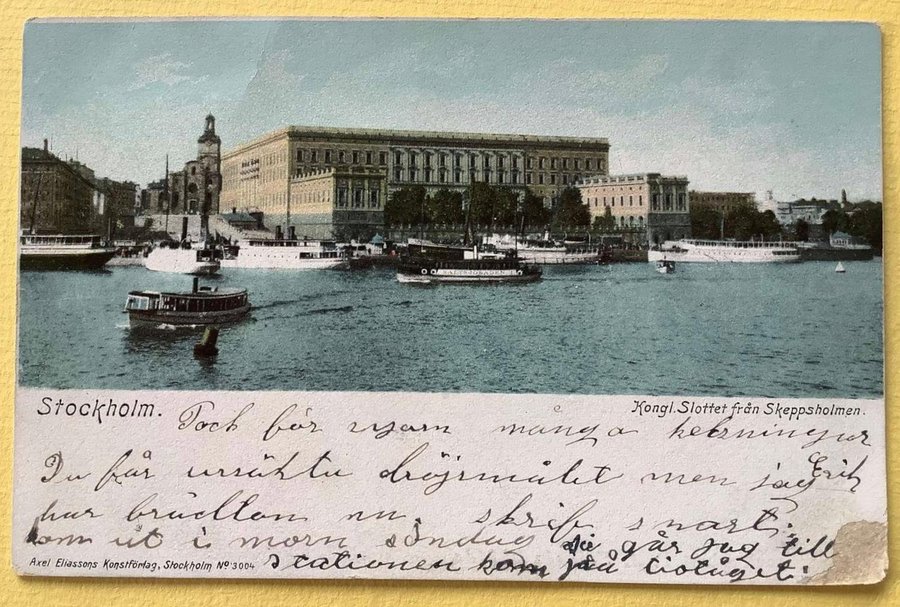 Stockholm.
Kongl. Slottet från Skeppsholmen.
Tack för många helsningar
Du får ursäkta dröjsmålet men jag
Erik
har nu. skrif snart.
kom ut i morn söndag så går jag till
Axel Eliassons Konstförlag, Stockholm Nº 3004
stationen kom på tåget.